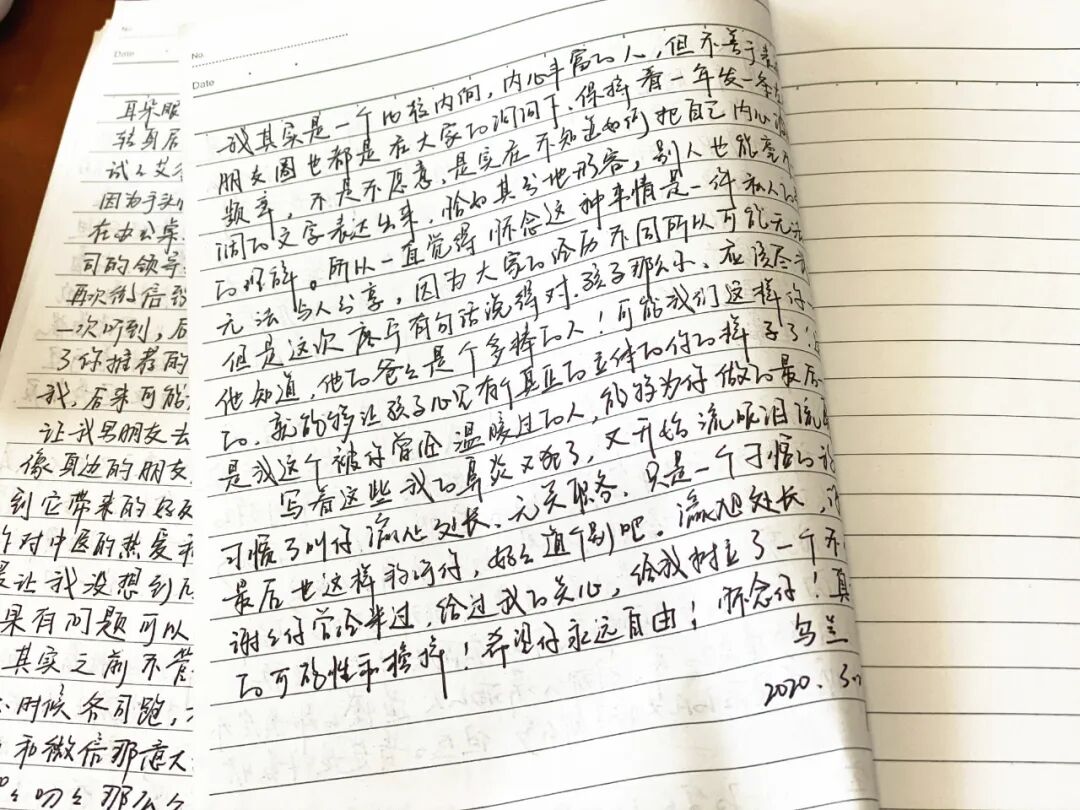 No.
Date
耳朵眼
转身后
试了艾
因为手头
在办公桌
司的领导
再次微信到
一次听到,后
了你推荐的
我,后来可能
让我男朋友去
像身边的朋友
到它带来的好处
对中医的热爱
让我没想到
果有问题可以
其实之前不管
时候各司跑,
和微信那意大
那么
No.
Date
我其实是一个比较内向,内心丰富的人,但不善于表
朋友圈也都是在大家的询问下,保持着一年发一条
频率,不是不愿意,是实在不知道如何把自己内心
的文字表达出来,恰如其分地形容,别人也能
的理解。所以一直觉得怀念这种事情是一件私人的
无法与人分享,因为大家的经历不同所以可能无法
但是这次 有句话说得对,孩子那么小,应该尽
他知道,他的爸爸是个多棒的人!可能我们这样你
的,就能够让孩子心里有个真正的立体的你的样子了!
是我这个被你曾经温暖过的人,能够为你做的最后
写着这些我的鼻炎又犯了,又开始流眼泪流
习惯了叫你 处长,无关职务,只是一个习惯的
最后也这样称呼你,好好道个别吧。 处长,
谢谢你曾经来过,给过我的关心,给我树立了一个
的可能性和榜样!希望你永远自由!怀念你!真
乌兰
2020.3.